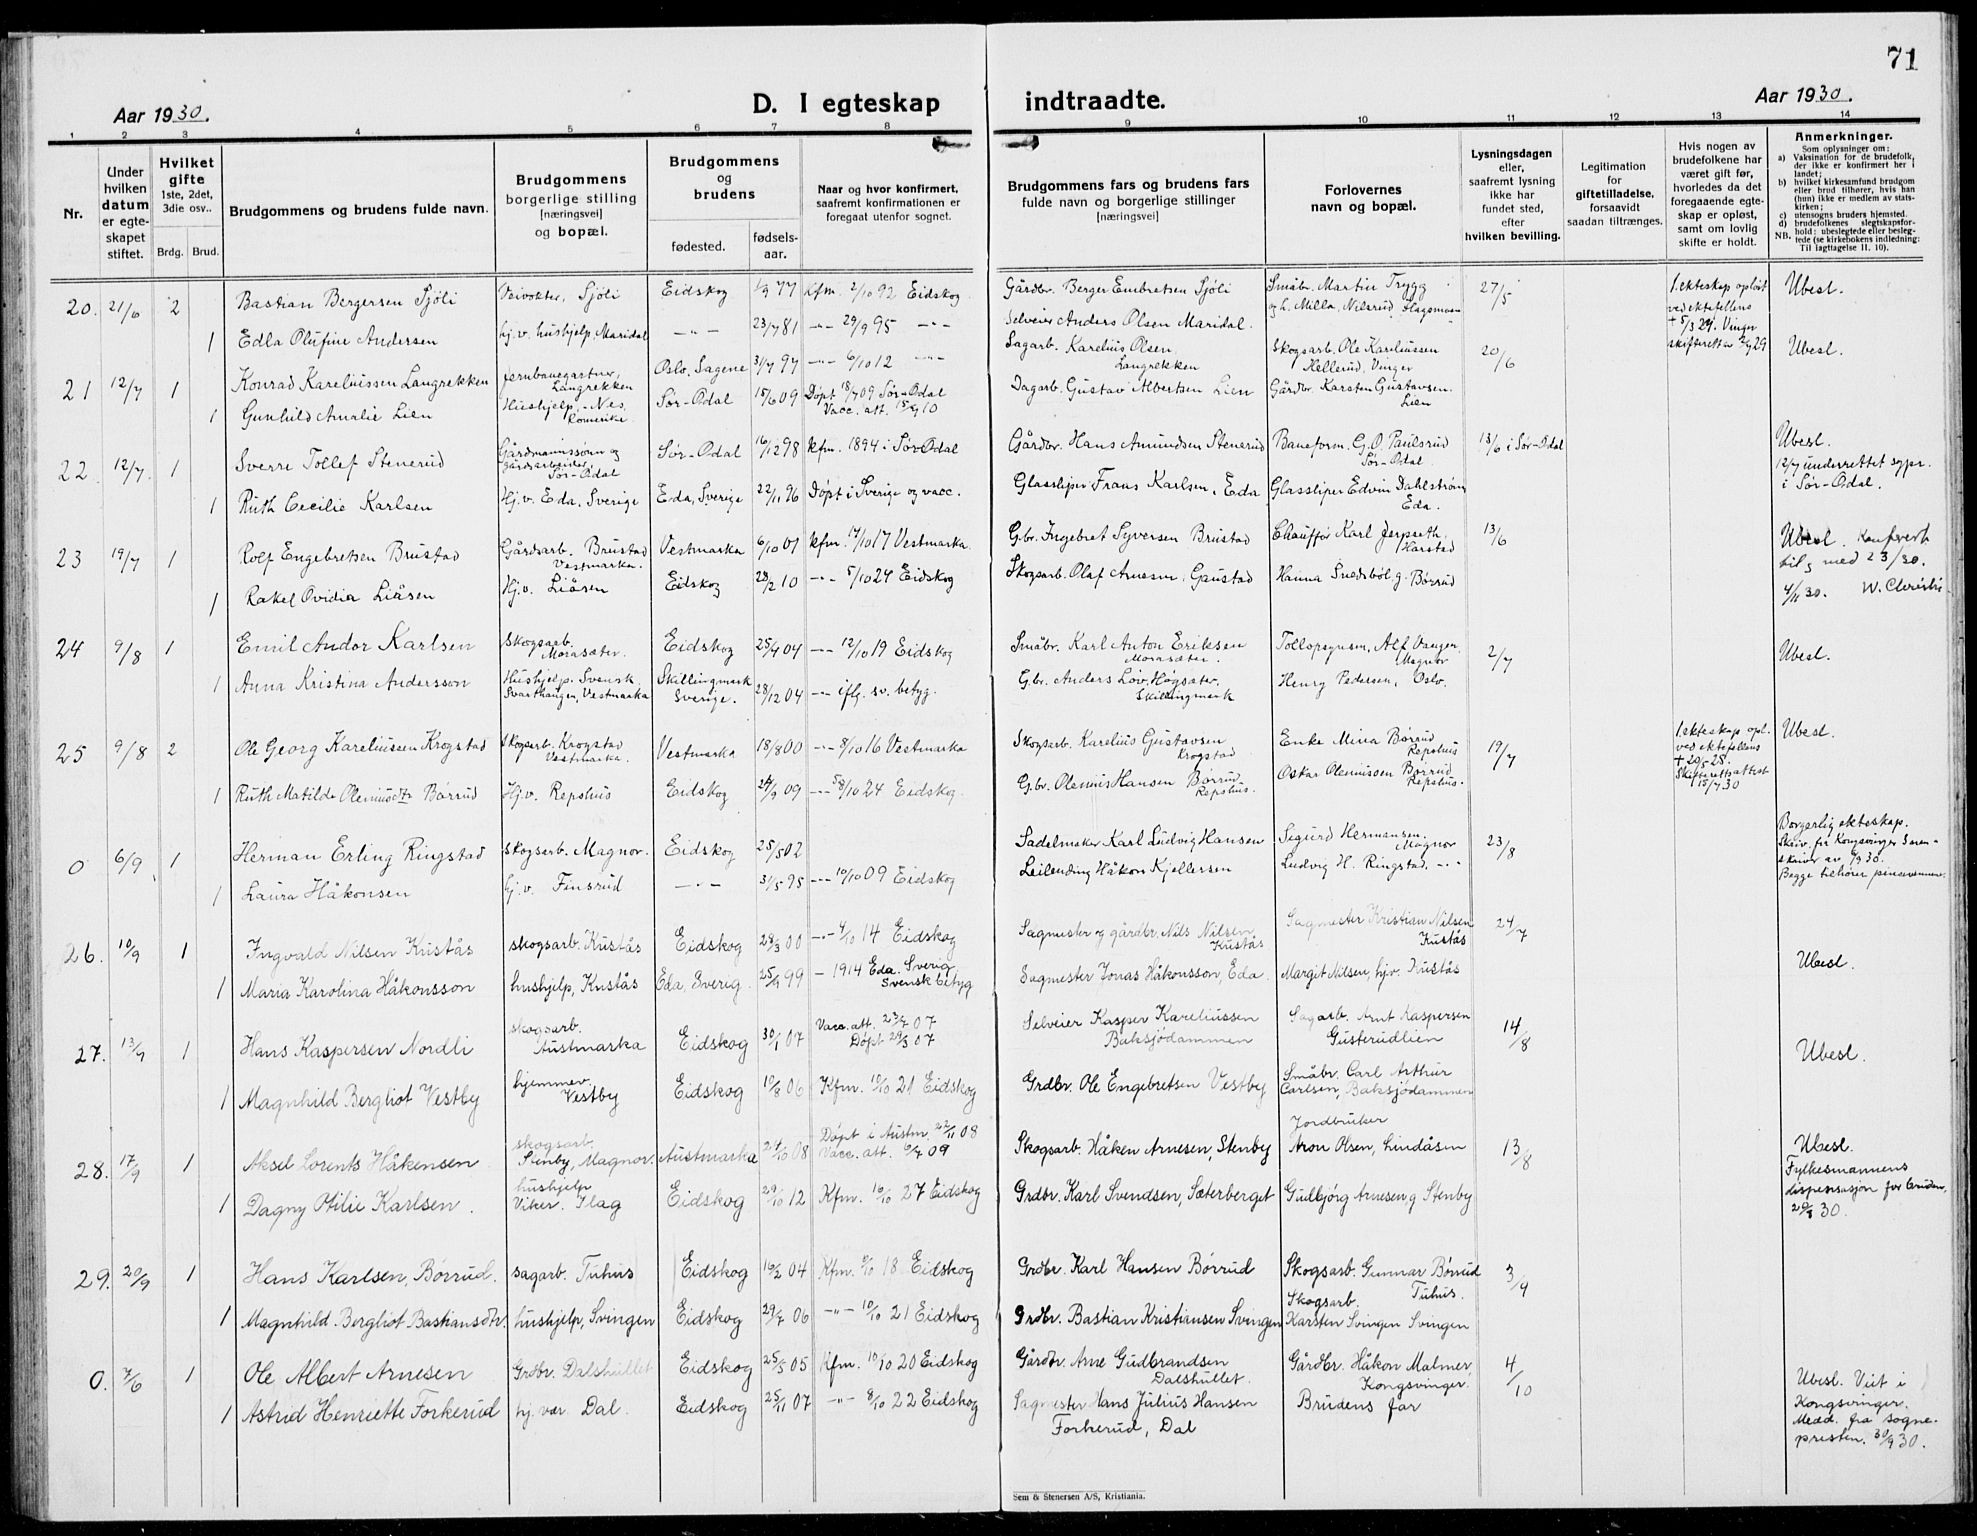 71
Aar 1930.
D. I egteskap indtraadte.
Aar 1930.
1 2 3 4 5 6 7 8 9 10 11 12 13 14
Nr.
Under hvilken datum er egteskapet stiftet.
Hvilket gifte 1ste, 2det, 3die osv..
Brdg. Brud.
Brudgommens og brudens fulde navn.
Brudgommens borgerlige stilling [næringsvei] og bopæl.
Brudgommens og brudens
fødested. fødselsaar.
Naar og hvor konfirmert, saafremt konfirmationen er foregaat utenfor sognet.
Brudgommens fars og brudens fars fulde navn og borgerlige stillinger [næringsvei]
Forlovernes navn og bopæl.
Lysningsdagen eller, saafremt lysning ikke har fundet sted, efter hvilken bevilling.
Legitimation for giftetilladelse, forsaavidt saadan tiltrænges.
Hvis nogen av brudefolkene har været gift før, hvorledes da det foregaaende egteskap er opløst, samt om lovlig skifte er holdt.
Anmerkninger.
Som oplysninger om:
a) Vaksination for de brudefolk, der ikke er konfirmert her i landet;
b) hvilket kirkesamfund brudgom eller brud tilhører, hvis han (hun) ikke er medlem av statskirken;
c) utensogns bruders hjemsted.
d) brudefolkenes slegtskapsforhold: ubeslegtede eller beslegtede (se kirkebokens indledning:
NB. Til iagttagelse II, 10).
20. 21/6 2 Bastian Bergersen Sjöli Veivokter, Sjöli Eidskog 1/9 77 Kfm. 2/10 92 Eidskog Gårdbr. Berger Embretsen Sjöli Småbr. Martin Trygg 27/5 1. ekteskap opløst ved ektefellens + 5/3 29. Vinger skifterett Ubesl.
1 Edla Olufine Andersen hj. v. hushjelp, Maridal -"- 23/7 81 -"- 29/9 95 -"- Selveier Anders Olsen Maridal. og h. Milla Nilsrud, Ubesl.
21 12/7 1 Konrad Kareliussen Langrekken Jernbanegartner, Langrekken Oslo, Sagene 31/7 97 -"- 6/10 12 -"- Sagarb. Karelius Olsen, Langrekken Skogsarb. Ole Kareliussen Hellerud, Vinger 20/6
1 Gunhild Amalie Lien Hushjelp, Nes, Romerike. Sør-Odal 15/6 09 Døpt 18/7 09 Sør-Odal Vacc. att. 15/9 10 Dagarb. Gustav Albertsen Lien Gårdbr. Karsten Gustavsen Lien
22 12/7. 1 Sverre Tollef Stenerud Gårdmannssønn og gårdsarbeider, Sør-Odal Sør-Odal 16/12 98 kfm. 1894 i Sør Odal Gårdbr. Hans Amundsen Stenerud Baneform. G. O. Paulsrud Sør-Odal 13/6 i Sør-Odal Ubesl. 12/7 underrettet sypr. i Sør-Odal.
1 Ruth Cecilie Karlsen Hj. v. Eda, Sverige Eda, Sverige 22/11 96 Døpt i Sverige og vacc. Glassliper Frans Karlsen, Eda Glassliper Edvin Dahlström Eda.
23 19/7 1 Rolf Engebretsen Brustad Gårdsarb. Brustad Vestmarka. Vestmarka 6/10 01 kfm. 7/10 17 Vestmarka. G.br. Ingebret Syversen Brustad Chauffør Karl Jerpseth, Harstad 13/6 Ubesl. Konferert bil. 5 med 23/30.
1 Rakel Ovidia Liåsen Hj. v. Liåsen Eidskog 28/2 10 -"- 5/10 24 Eidskog Skogsarb. Olaf Arnesen, Gaustad Hanna Snedsböl g. Børrud 4/11 30.
24 9/8 1 Emil Andor Karlsen Skogsarb. Morasæter. Eidskog 25/4 04 -"- 12/10 19 Eidskog Småbr. Karl Anton Eriksen Morasæter. Alf Vangen Magnor 2/7 Ubesl.
1 Anna Kristina Andersson Hushjelp. Svensk. Svarthaugen, Vestmarka Skillingmark Sverige. 28/12 04 -"- iflg. sv. betyg. G.br. Anders Lov. Högsæter, Skillingmark Henry Pedersen, Oslo.
25 9/8 2 Ole Georg Kareliussen Krogstad Skogsarb. Krogstad Vestmarka. Vestmarka 18/8 00 -"- 8/10 16 Vestmarka Skogsarb. Karelius Gustavsen Krogstad Enke Mina Børrud Repshus 19/7 1. ekteskap opl. ved ektefellens + 20/5-28. Skifterettsattest 15/7 30 Ubesl.
1 Ruth Matilde Olemusdtr Børrud Hj. v. Repshus Eidskog 24/9 09 -"- 5/10 24 Eidskog. G.br. Olemus Hansen Børrud Repshus. Oskar Olemussen Børrud Repshus.
0 6/9 1 Herman Erling Ringstad Skogsarb. Magnor. Eidskog 25/5 02 Sadelmaker Karl Ludvig Hansen Sigurd Hermansen. Magnor 23/8 Borgerlig ekteskap. Skriv. fra Kongsvinger Soren-skriver av 30. Begge tilhører pinsevennene.
1 Laura Håkonsen hj. v. Finsrud -"- 31/5 95 -"- 10/10 09 Eidskog Leilending Håkon Kjellersen Ludvig H. Ringstad, -"-
26. 10/9 1 Ingvald Nilsen Kuståas skogsarb. Kustås Eidskog 28/3 00 -"- 4/10 14 Eidskog Sagmester og gårdbr. Nils Nilsen Kustås Sagmester Kristian Nilsen Kustås 24/7 Ubesl.
1 Maria Karolina Håkonsson hushjelp, Kustås Eda, Sverig. 25/9 99 - 1914 Eda. Sverig Svensk betyg Sagmester Jonas Håkonsson, Eda. Margit Nilsen, hjv. Kustås
27. 13/9 1 Hans Kaspersen Nordli skogsarb. Austmarka Eidskog 30/1 07 Vacc. att. 23/7 07 Døpt 29/3 07 Selveier Kasper Kareliussen Baksjödammen Sagarb. Arnt Kaspersen Gusterudlien 14/8 Ubesl.
1 Magnhild Bergliot Vestby hjemmev. Vestby Eidskog 10/8 06 Kfm. 10/10 21 Eidskog Grdbr. Ole Engebretsen Vestby Småbr. Carl Arthur Carlsen, Baksjødammen
28. 17/9 1 Aksel Lorents Håkensen skogsarb. Stenby, Magnor. Austmarka 24/10 08 Døpt i Austm. 22/11 08 Vacc. att. 6/7 09 Skogsarb. Håken Arnesen, Stenby Jordbruker Aron Olsen, Lindåsen 13/8 Ubesl. Fylkesmannens dispensasjon for bruden, 29/8 30.
1 Dagny Otilie Karlsen. hushjelp Viker. Flag Eidskog 29/10 12 Kfm. 10/10 27 Eidskog Grdbr. Karl Svendsen, Sæterberget Gulbjörg Arnesen g Stenby
29. 20/9 1 Hans Karlsen, Børrud. sagarb. Tuhus Eidskog 10/2 04 Kfm. 6/10 18 Eidskog Grdbr. Karl Hansen Børrud Skogsarb. Gunnar Børrud Tuhus. 3/9
1 Magnhild Bergliot Bastiansdtr. hushjelp, Svingen Eidskog 29/7 06 -"- 10/10 21 Eidskog Grdbr. Bastian Kristiansen Svingen Skogsarb. Karsten Svingen Svingen
0. 7/6 1 Ole Albert Arnesen Grdbr. Dalshullet Eidskog 25/5 05 Kfm. 10/10 20 Eidskog Gårdbr. Arne Gudbrandsen Dalshullet. Gårdbr. Håkon Malmer, Kongsvinger. 4/10 Ubesl. Viet i Kongsvinger. Medd. fra sogne-presten. 30/9 30.
1 Astrid Henriette Forkerud hj. vær. Dal. Eidskog 25/11 07 -"- 8/10 22 Eidskog Sagmester Hans Julius Hansen Forkerud, Dal Brudens far
Sem & Stenersen A/S, Kristiania.